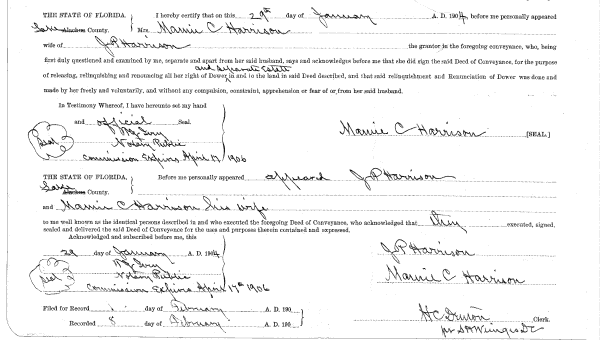 THE STATE OF FLORIDA. I hereby certify that on this 29th day of January A. D. 1904, before me personally appeared
County. Mrs Mamie C Harrison
wife of J P Harrison the grantor in the foregoing conveyance, who, being
first duly questioned and examined by me, separate and apart from her said husband, says and acknowledges before me that she did sign the said Deed of Conveyance, for the purpose
and separate Estate
of releasing, relinquishing and renouncing all her right of Dower in and to the land in said Deed described, and that said relinquishment and Renunciation of Dower was done and
made by her freely and voluntarily, and without any compulsion, constraint, apprehension or fear of or from her said husband.
In Testimony Whereof, I have hereunto set my hand
and official Seal.
Seal
Notary Public
Commission Expires April 17, 1906
Mamie C Harrison [SEAL.]
THE STATE OF FLORIDA. Before me personally appeared appeared J P Harrison
County.
and Mamie C Harrison his wife
to me well known as the identical persons described in and who executed the foregoing Deed of Conveyance, who acknowledged that they executed, signed,
sealed and delivered the said Deed of Conveyance for the uses and purposes therein contained and expressed.
Acknowledged and subscribed before me, this
29 day of January A. D. 1904
Seal
Notary Public
Commission Expires April 17th 1906
J P Harrison
Mamie C Harrison
Filed for Record 1 day of February A. D. 190
Recorded 8 day of February A. D. 190
H C Clerk.